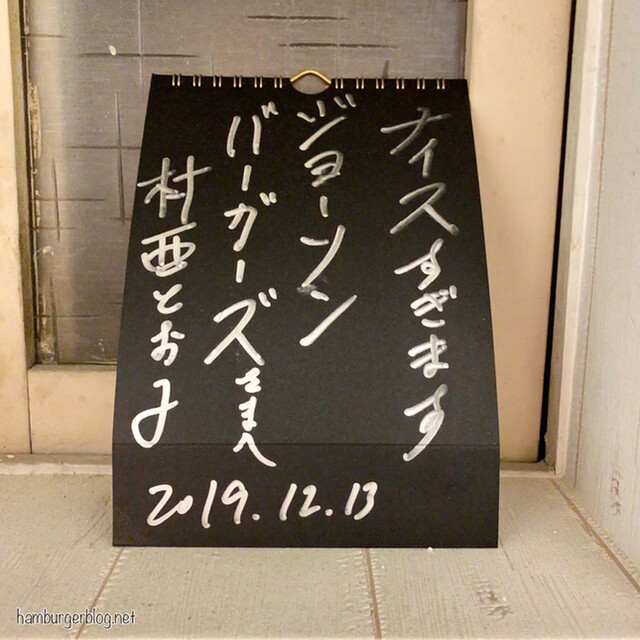 ナイスすぎます
ジョーソン
バーガーズさまへ
村西とおる
2019.12.13
hamburgerblog.net